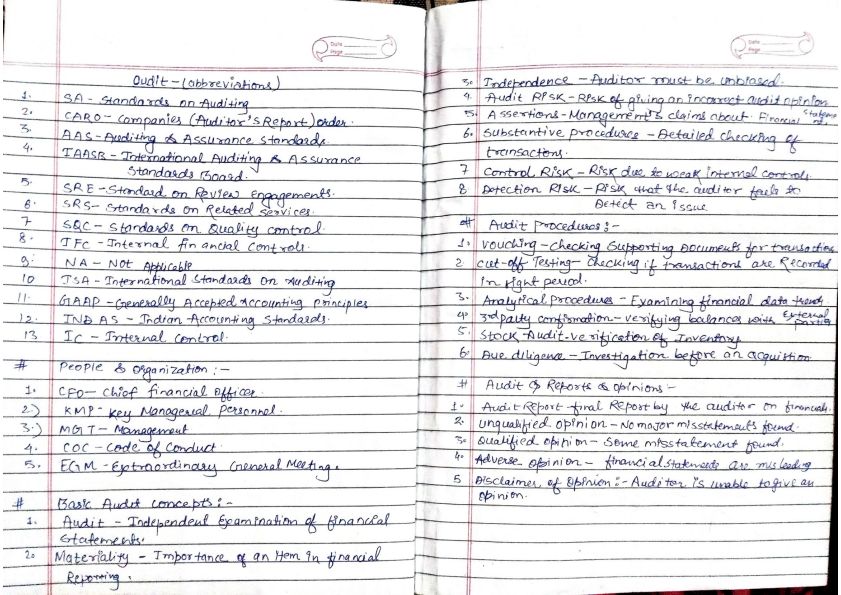 Date
Page
Audit - (abbreviations)
1. SA - Standards on Auditing
2. CARO - Companies (Auditor's Report) order.
3. AAS - Auditing & Assurance standards.
4. IAASB - International Auditing & Assurance
Standards Board.
5. SRE - Standard on Review Engagements.
6. SRS - Standards on Related services.
7 SQC - Standards on Quality control.
8. IFC - Internal financial controls.
9. NA - NOT Applicable
10 ISA - International Standards on Auditing
11. GAAP - Generally Accepted Accounting principles
12. IND AS - Indian Accounting Standards.
13 IC - Internal control.
# People & Organization :-
1. CFO - Chief financial Officer.
2.) KMP - Key Managerial Personnel.
3.) MGT - Management
4. COC - Code of Conduct.
5. EGM - Extraordinary General Meeting.
# Basic Audit concepts :-
1. Audit - Independent Examination of financial
statements.
2. Materiality - Importance of an item in financial
Reporting.
Date
Page
3. Independence - Auditor must be unbiased.
4. Audit RISK - RISK of giving an incorrect audit opinion
5. Assertions - Management's claims about Financial Statements
6. Substantive procedures - Detailed checking of
transactons.
7 Control RISK - Risk due to weak internal controls
8 Detection RISK - Risk that the auditor fails to
Detect an issue
# Audit procedures :-
1. Vouching - checking Supporting Documents for transaction
2 cut-off Testing - checking if transactions are Recorded
in right period.
3. Analytical procedures - Examining financial data trends
4. 3rd party confirmation - verifying balances with External parties
5. Stock Audit - verification of Inventory
6. Due diligence - Investigation before an acquistion
# Audit & Reports & opinions :-
1. Audit Report - final Report by the auditor on financials.
2. unqualified opinion - No major misstatements found.
3. Qualified opinion - Some misstatement found.
4. Adverse opinion - financial statements are misleading
5 Disclaimer of opinion :- Auditor is unable to give an
opinion.